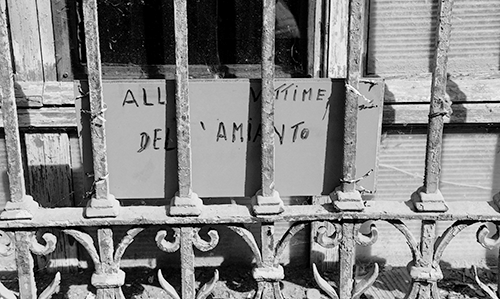 ALLE VITTIME
DELL'AMIANTO